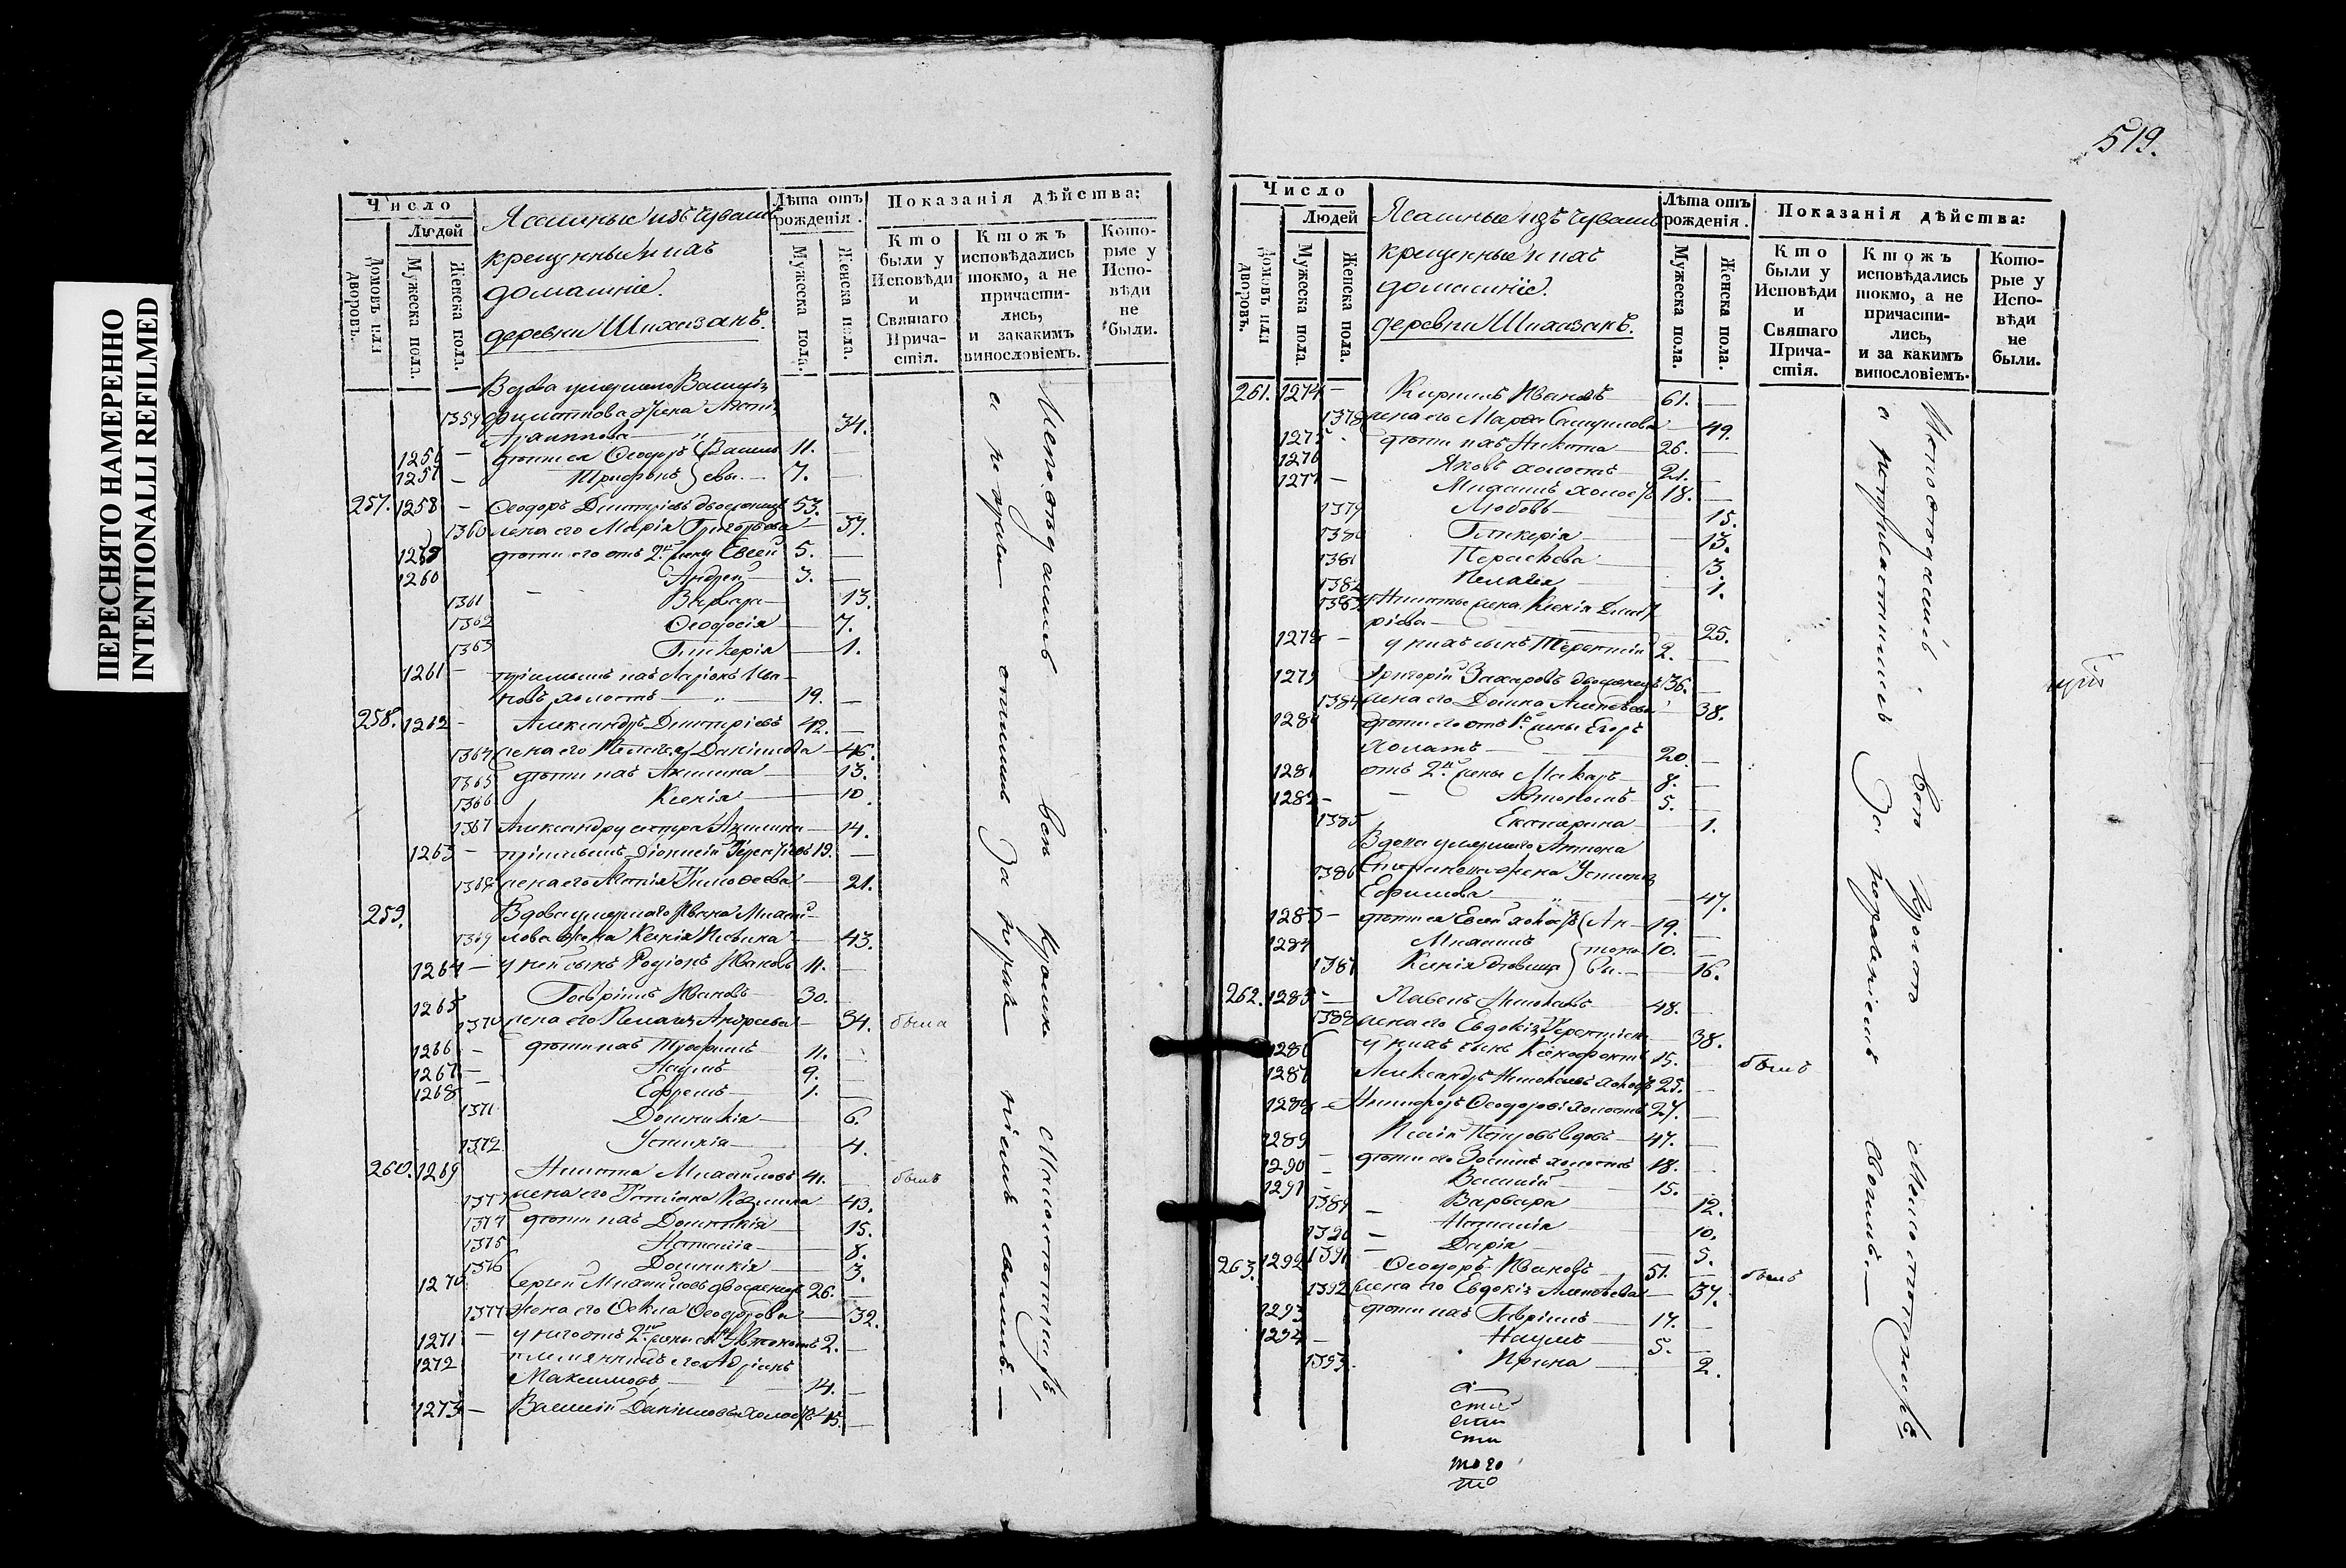 ПЕРЕСНЯТО НАМЕРЕННО
INTENTIONALLI REFILMED
Число
Людей
Домовъ или дворовъ.
Мужеска пола.
Женска пола.
Ясашные изъ Чувашъ
крещенные и ихъ
домашніе.
деревни Шихазанъ.
Лѣта отъ рожденія.
Мужеска пола.
Женска пола.
Показанія дѣйства:
Кто были у Исповѣди и Святаго Причастія.
Ктожъ исповѣдались токмо, а не причастились, и закакимъ винословіемъ.
Которые у Исповѣди не были.
Вдова умершаго Василія
1359 Филиппова жена
34.
1256 — дѣти ея Ѳеодоръ Василь 11. —
1257 — Трифонъ евы — 7. —
257. 1258 — Ѳеодоръ Дмитріевъ двоеженецъ 53. —
1360 жена его Марія Григорьева — 37.
дѣти его отъ 2й жены Евсей 5. —
1260 Андрей — 3. —
1361 Варвара — 13.
1362 Ѳеодосія — 7.
1363 Гликерія — 1.
1261 — пріемышъ ихъ Ларіонъ Ива-
новъ холостъ — 19. —
258. 1262 — Александръ Дмитріевъ 42. —
1364 жена его Пелагея Данилова — 46.
1365 дѣти ихъ Акилина — 13.
1366 Ксенія — 10.
1367 Александру сестра Акилина — 14.
1263 — пріемышъ Діонисій 19. —
1368 жена его Тимоѳеева — 21.
259. Вдова умершаго Ивана Михай-
1369 лова жена Ксенія — 43.
1264 — у ней сынъ Родіонъ Ивановъ 11. —
1265 Гавріилъ Ивановъ 30. —
1370 жена его Пелагія Андреева — 34. была
1266 — дѣти ихъ Трофимъ 11. —
1267 — Наумъ 9. —
1268 — Ефремъ 1. —
1371 Домникія — 6.
1372 Устинія — 4.
260. 1269 Никита Михайловъ 41. — былъ
1373 жена его Татіана — 43.
1374 дѣти ихъ Домникія — 15.
1375 Наталія — 8.
1376 Домникія — 3.
1270 Сергей Михайловъ двоеженецъ 26. —
1377 жена его Ѳекла Ѳеодорова — 32.
1271 — у него отъ 2й жены сынъ Автономъ 2. —
1272 племянникъ его Адріанъ
Максимовъ — 14. —
1273 — Василій Даниловъ холостъ 45. —
Исповѣдались всѣ кромѣ малолѣтнихъ,
а не прича стились за нерадѣніемъ своимъ. —
519.
Число
Людей
Домовъ или дворовъ.
Мужеска пола.
Женска пола.
Ясашные изъ Чувашъ
крещенные и ихъ
домашніе.
деревни Шихазанъ.
Лѣта отъ рожденія.
Мужеска пола.
Женска пола.
Показанія дѣйства:
Кто были у Исповѣди и Святаго Причастія.
Ктожъ исповѣдались токмо, а не причастились, и за какимъ винословіемъ.
Которые у Исповѣди не были.
261. 1274 — Кирилъ Ивановъ 61. —
1378 жена его Марѳа Самуилова — 49.
1275 дѣти ихъ Никита 26. —
1276 Яковъ холостъ 21. —
1277 — Михаилъ холостъ 18. —
1379 Любовь — 15.
1380 Гликерія — 13.
1381 Параскева — 3.
1382 Пелагія — 1.
1383 у Никиты жена Ксенія Дмит-
ріева — 25.
1278 — у нихъ сынъ Терентій 2. —
1279 Григорій Захаровъ двоеженецъ 36. —
1384 жена его Домна Алексѣева — 38.
1280 дѣти его отъ 1й жены Егоръ
холостъ — 20. —
1281 отъ 2й жены Макаръ 8. —
1282 — Автономъ 5. —
1385 Екатерина — 1.
Вдова умершаго Антона
1386 жена Устинія
Ефимова — 47.
1283 — дѣти ея Евсей холостъ Ан- 19. —
1284 Михаилъ тоно- 10. —
1387 Ксенія дѣвица вы — 16.
262. 1285 — Павелъ 48. —
1388 жена его Евдокія Терентьева — 38.
1286 у нихъ сынъ Ксенофонтъ 15. — былъ
1287 Александръ холостъ 25. —
1288 — Никифоръ Ѳеодоровъ холостъ 27. —
1289 Петровъ вдовъ 47. —
1290 — дѣти его холостъ 18. —
1291 — Василій 15. —
1389 Варвара — 12.
1390 Наталія — 10.
1391 Дарія — 5.
263. 1292 Ѳеодоръ Ивановъ 51. — былъ
1392 жена его Евдокія Алексѣева — 37.
1293 дѣти ихъ Гавріилъ 17. —
1294 Наумъ 5. —
1393 Ирина — 2.
Исповѣдались всѣ кромѣ малолѣтнихъ,
а непричастились за нерадѣніемъ своимъ. —
сти
сти
сти
того
то